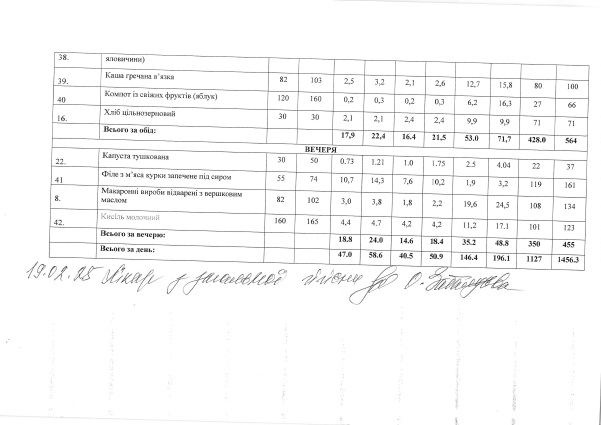 38. яловичини)
39. Каша гречана в’язка 82 103 2,5 3,2 2,1 2,6 12,7 15,8 80 100
40 Компот із свіжих фруктів (яблук) 120 160 0,2 0,3 0,2 0,3 6,2 16,3 27 66
16. Хліб цільнозерновий 30 30 2,1 2,1 2,4 2,4 9,9 9,9 71 71
Всього за обід: 17,9 22,4 16.4 21,5 53.0 71,7 428.0 564
ВЕЧЕРЯ
22. Капуста тушкована 30 50 0.73 1.21 1.0 1.75 2.5 4.04 22 37
41 Філе з м’яса курки запечене під сиром 55 74 10,7 14,3 7,6 10,2 1,9 3,2 119 161
8. Макаронні вироби відварені з вершковим 82 102 3,0 3,8 1,8 2,2 19,6 24,5 108 134
маслом
42. Кисіль молочний 160 165 4,4 4.7 4,2 4,2 11,2 17.1 101 123
Всього за вечерю: 18.8 24.0 14.6 18.4 35.2 48.8 350 455
Всього за день: 47.0 58.6 40.5 50.9 146.4 196.1 1127 1456.3
19.02.25 Лікар з загальної гігієни О.